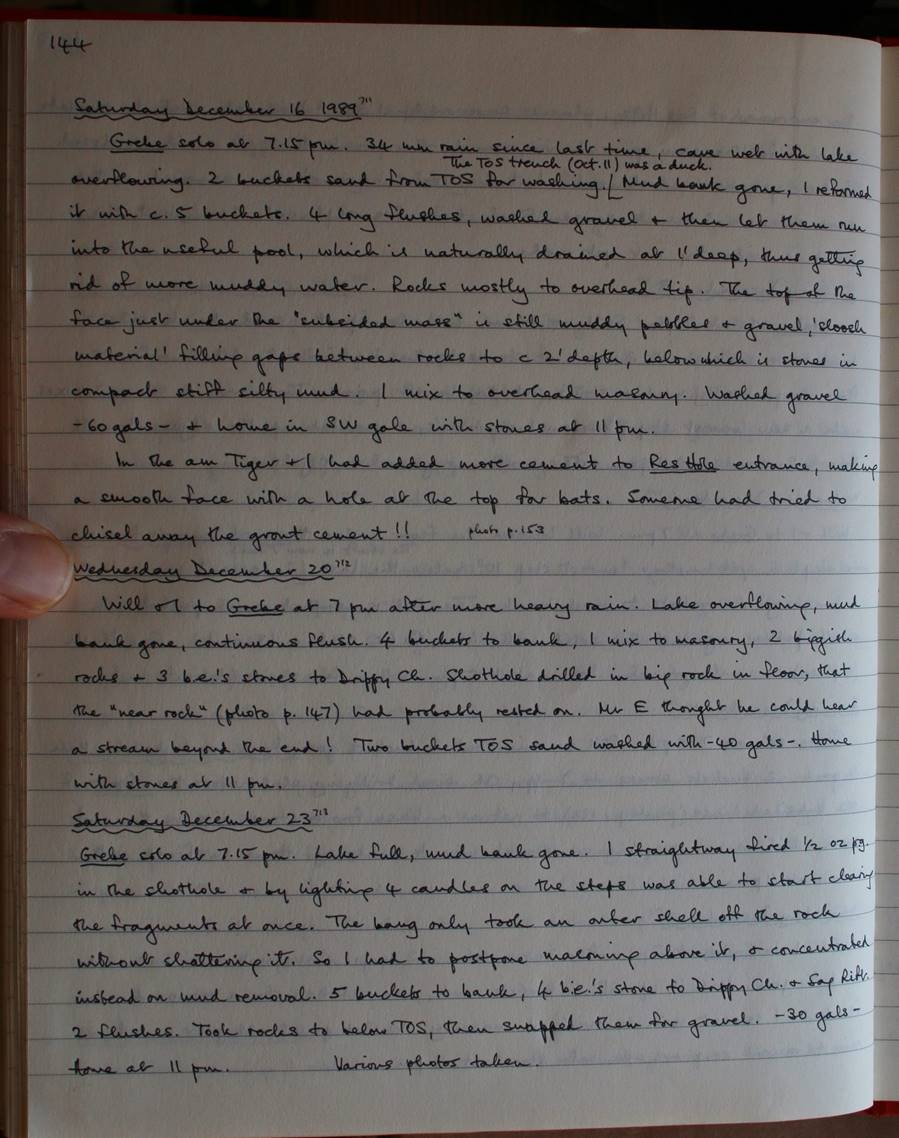 144
Saturday December 16 1989 711
Grebe solo at 7.15 pm. 34 mm rain since last time, cave wet with lake
The TOS trench (Oct. 11) was a duck.
overflowing. 2 buckets sand from TOS for washing. [Mud bank gone, I reformed
it with c. 5 buckets. 4 long flushes, washed gravel + then let them run
into the useful pool, which is naturally drained at 1' deep, thus getting
rid of more muddy water. Rocks mostly to overhead tip. The top of the
face just under the "subsided mass" is still muddy pebbles + gravel, 'sloosh
material' filling gaps between rocks to c 2' depth, below which is stones in
compact stiff silty mud. 1 mix to overhead masonry. Washed gravel
-60 gals- + home in SW gale with stones at 11 pm.
In the am Tiger + I had added more cement to Res Hole entrance, making
a smooth face with a hole at the top for bats. Someone had tried to
chisel away the grout cement !! photo p.153
Wednesday December 20 712
Will + I to Grebe at 7 pm after more heavy rain. Lake overflowing, mud
bank gone, continuous flush. 4 buckets to bank, 1 mix to masonry, 2 biggish
rocks + 3 b.e.'s stones to Drippy Ch. Shothole drilled in big rock in floor, that
the "near rock" (photo p. 147) had probably rested on. Mr E thought he could hear
a stream beyond the end ! Two buckets TOS sand washed with -40 gals-. Home
with stones at 11 pm.
Saturday December 23 713
Grebe solo at 7.15 pm. Lake full, mud bank gone. I straightway fired 1/2 oz pg.
in the shothole + by lighting 4 candles on the steps was able to start clearing
the fragments at once. The bang only took an outer shell off the rock
without shattering it. So I had to postpone masoning above it, + concentrated
instead on mud removal. 5 buckets to bank, 4 b.e.'s stone to Drippy Ch. + Sag Rift.
2 flushes. Took rocks to below TOS, then swapped them for gravel. -30 gals-
home at 11 pm. Various photos taken.